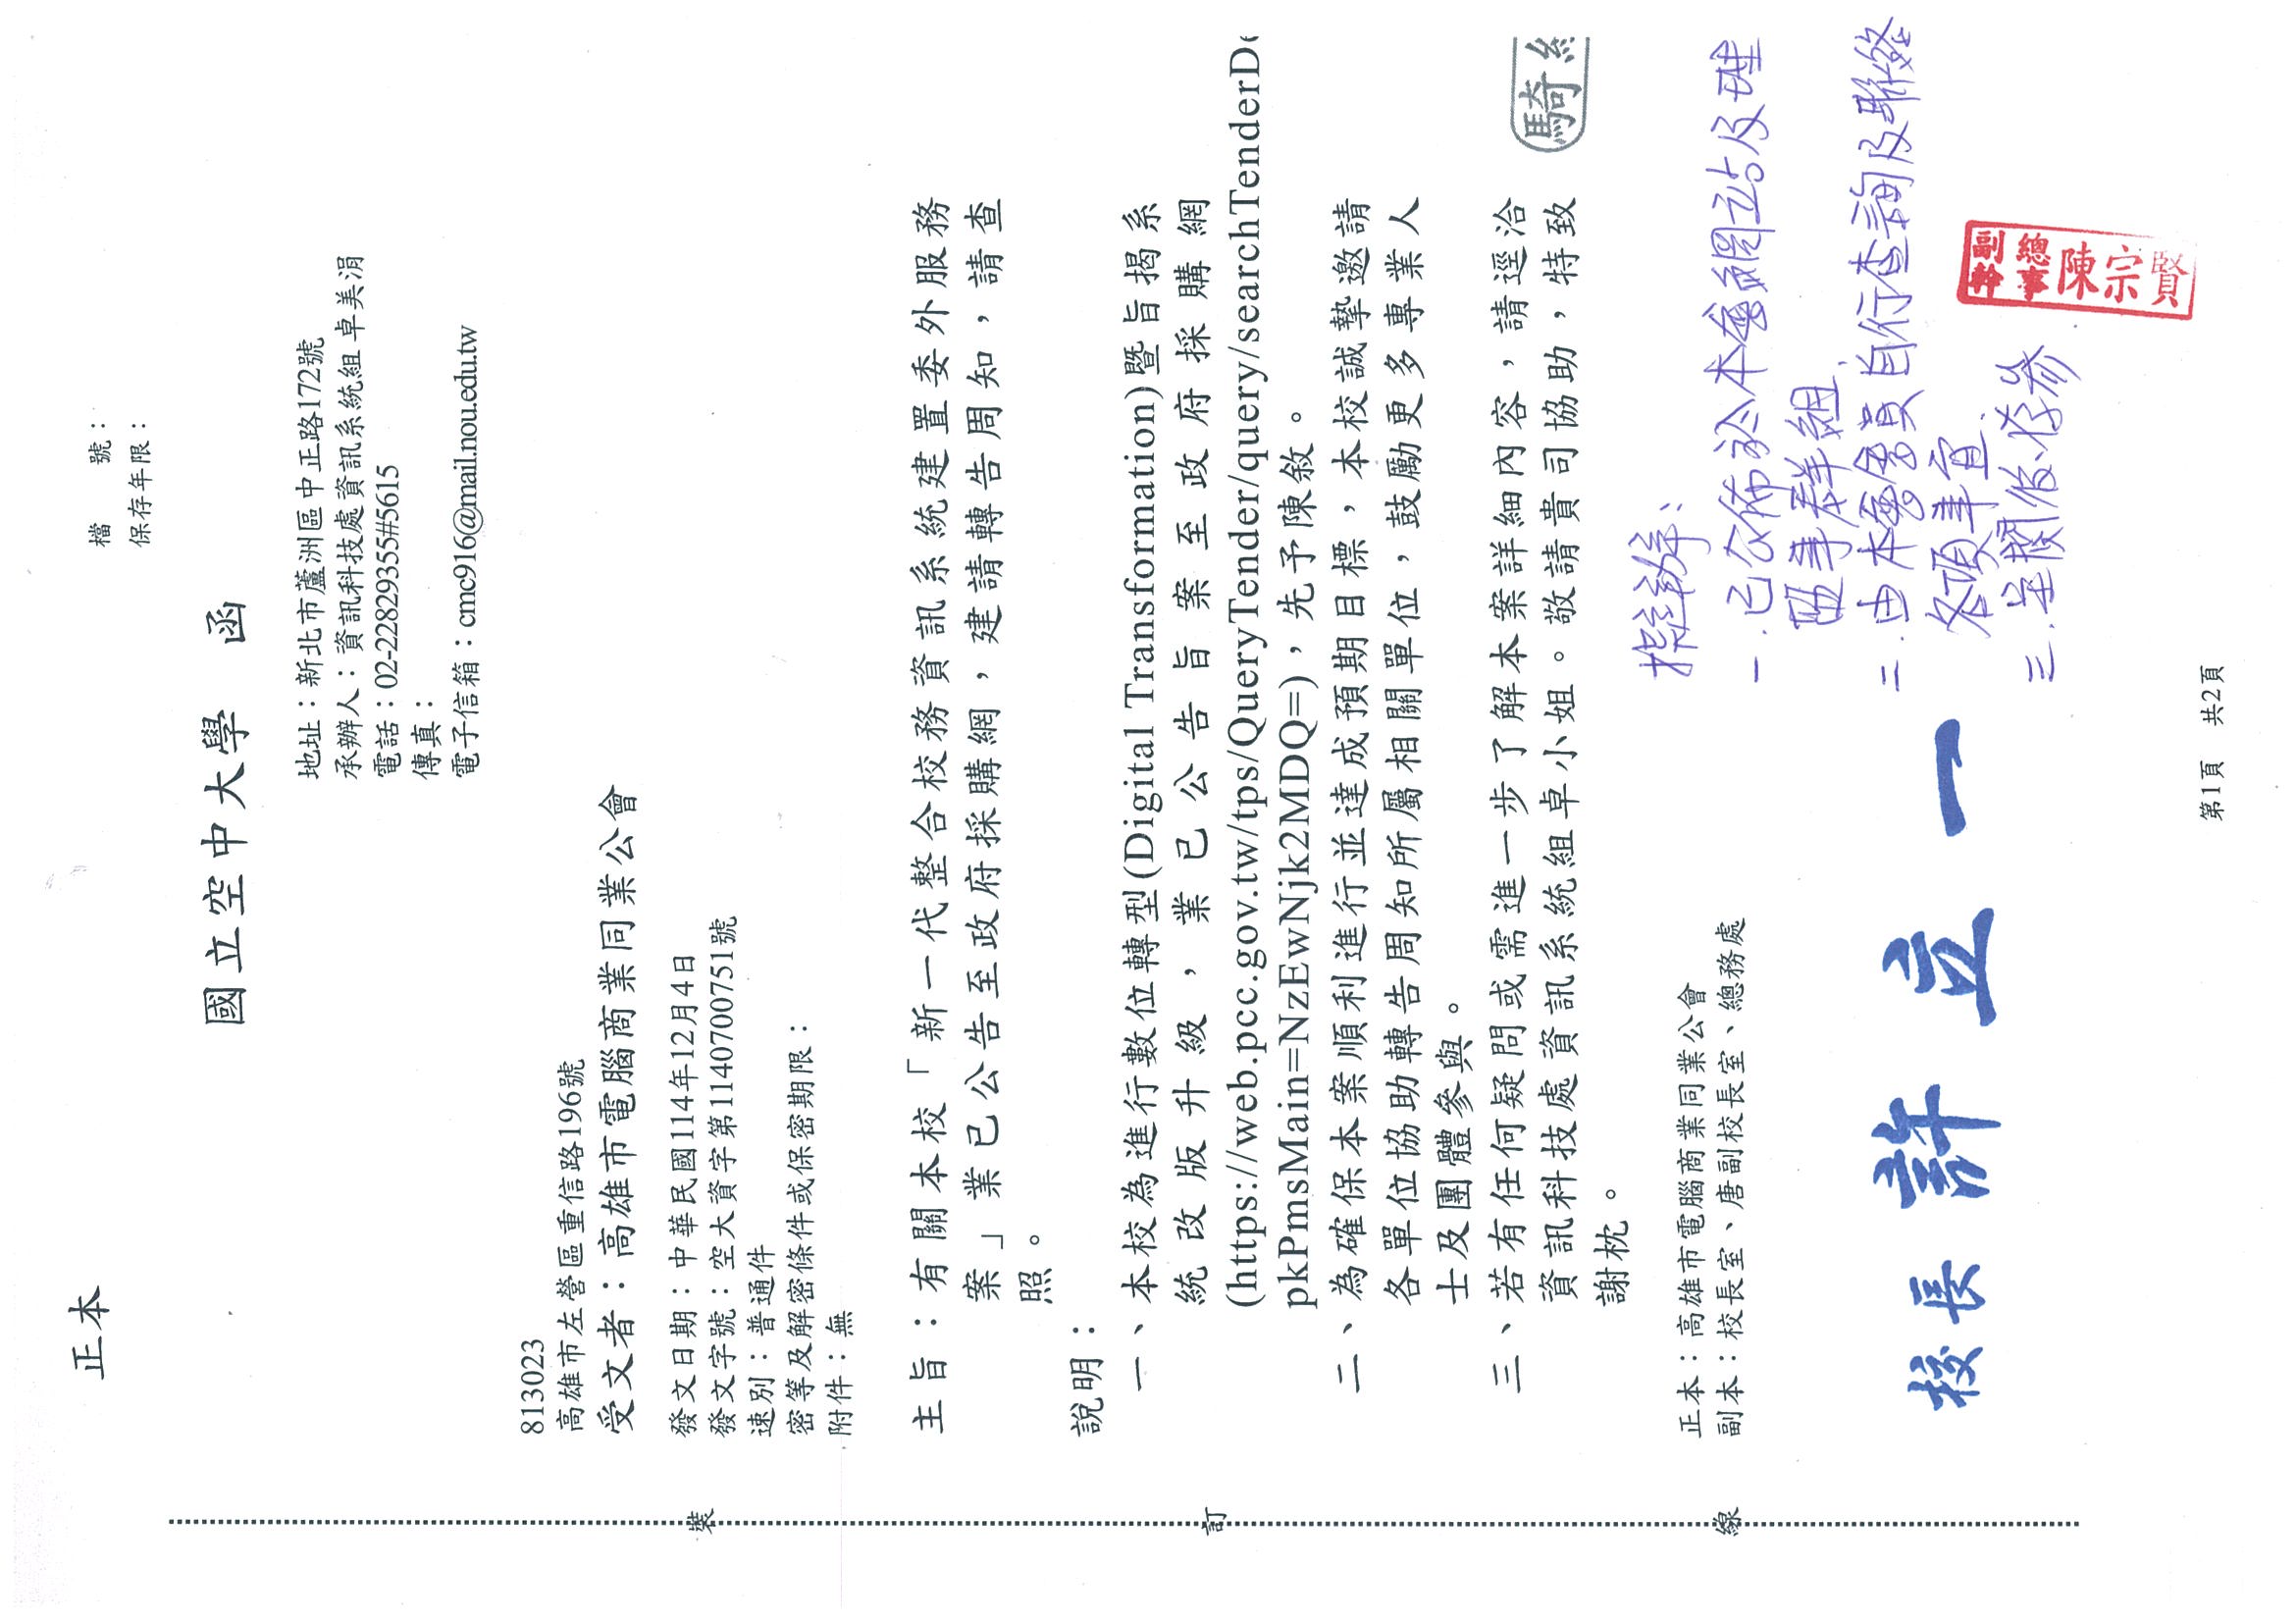 正本
檔　　號：
保存年限：
國立空中大學　函
地址：新北市蘆洲區中正路172號
承辦人：資訊科技處資訊系統組卓美涓
電話：02-22829355#5615
傳真：
電子信箱：cmc916@mail.nou.edu.tw
813023
高雄市左營區重信路196號
受文者：高雄市電腦商業同業公會
發文日期：中華民國114年12月4日
發文字號：空大資字第1140700751號
速別：普通件
密等及解密條件或保密期限：
附件：無
主旨：有關本校「新一代整合校務資訊系統建置委外服務
案」業已公告至政府採購網，建請轉告周知，請查
照。
說明：
一、本校為進行數位轉型(Digital Transformation)暨旨揭系
統改版升級，業已公告旨案至政府採購網
(https://web.pcc.gov.tw/tps/QueryTender/query/searchTenderD
pkPmsMain=NzEwNjk2MDQ=)，先予陳敘。
二、為確保本案順利進行並達成預期目標，本校誠摯邀請
各單位協助轉告周知所屬相關單位，鼓勵更多專業人
士及團體參與。
三、若有任何疑問或需進一步了解本案詳細內容，請逕洽
資訊科技處資訊系統組卓小姐。敬請貴司協助，特致
謝忱。
騎
正本：高雄市電腦商業同業公會
副本：校長室、唐副校長室、總務處
擬辦：
一.已公佈於本會網站及理
監事群組.
二.由本會會員自行查詢及聯絡
各項事宜
三.呈閱後存參
副總幹事陳宗賢
校長 許立一
裝
訂
線
第1頁　共2頁